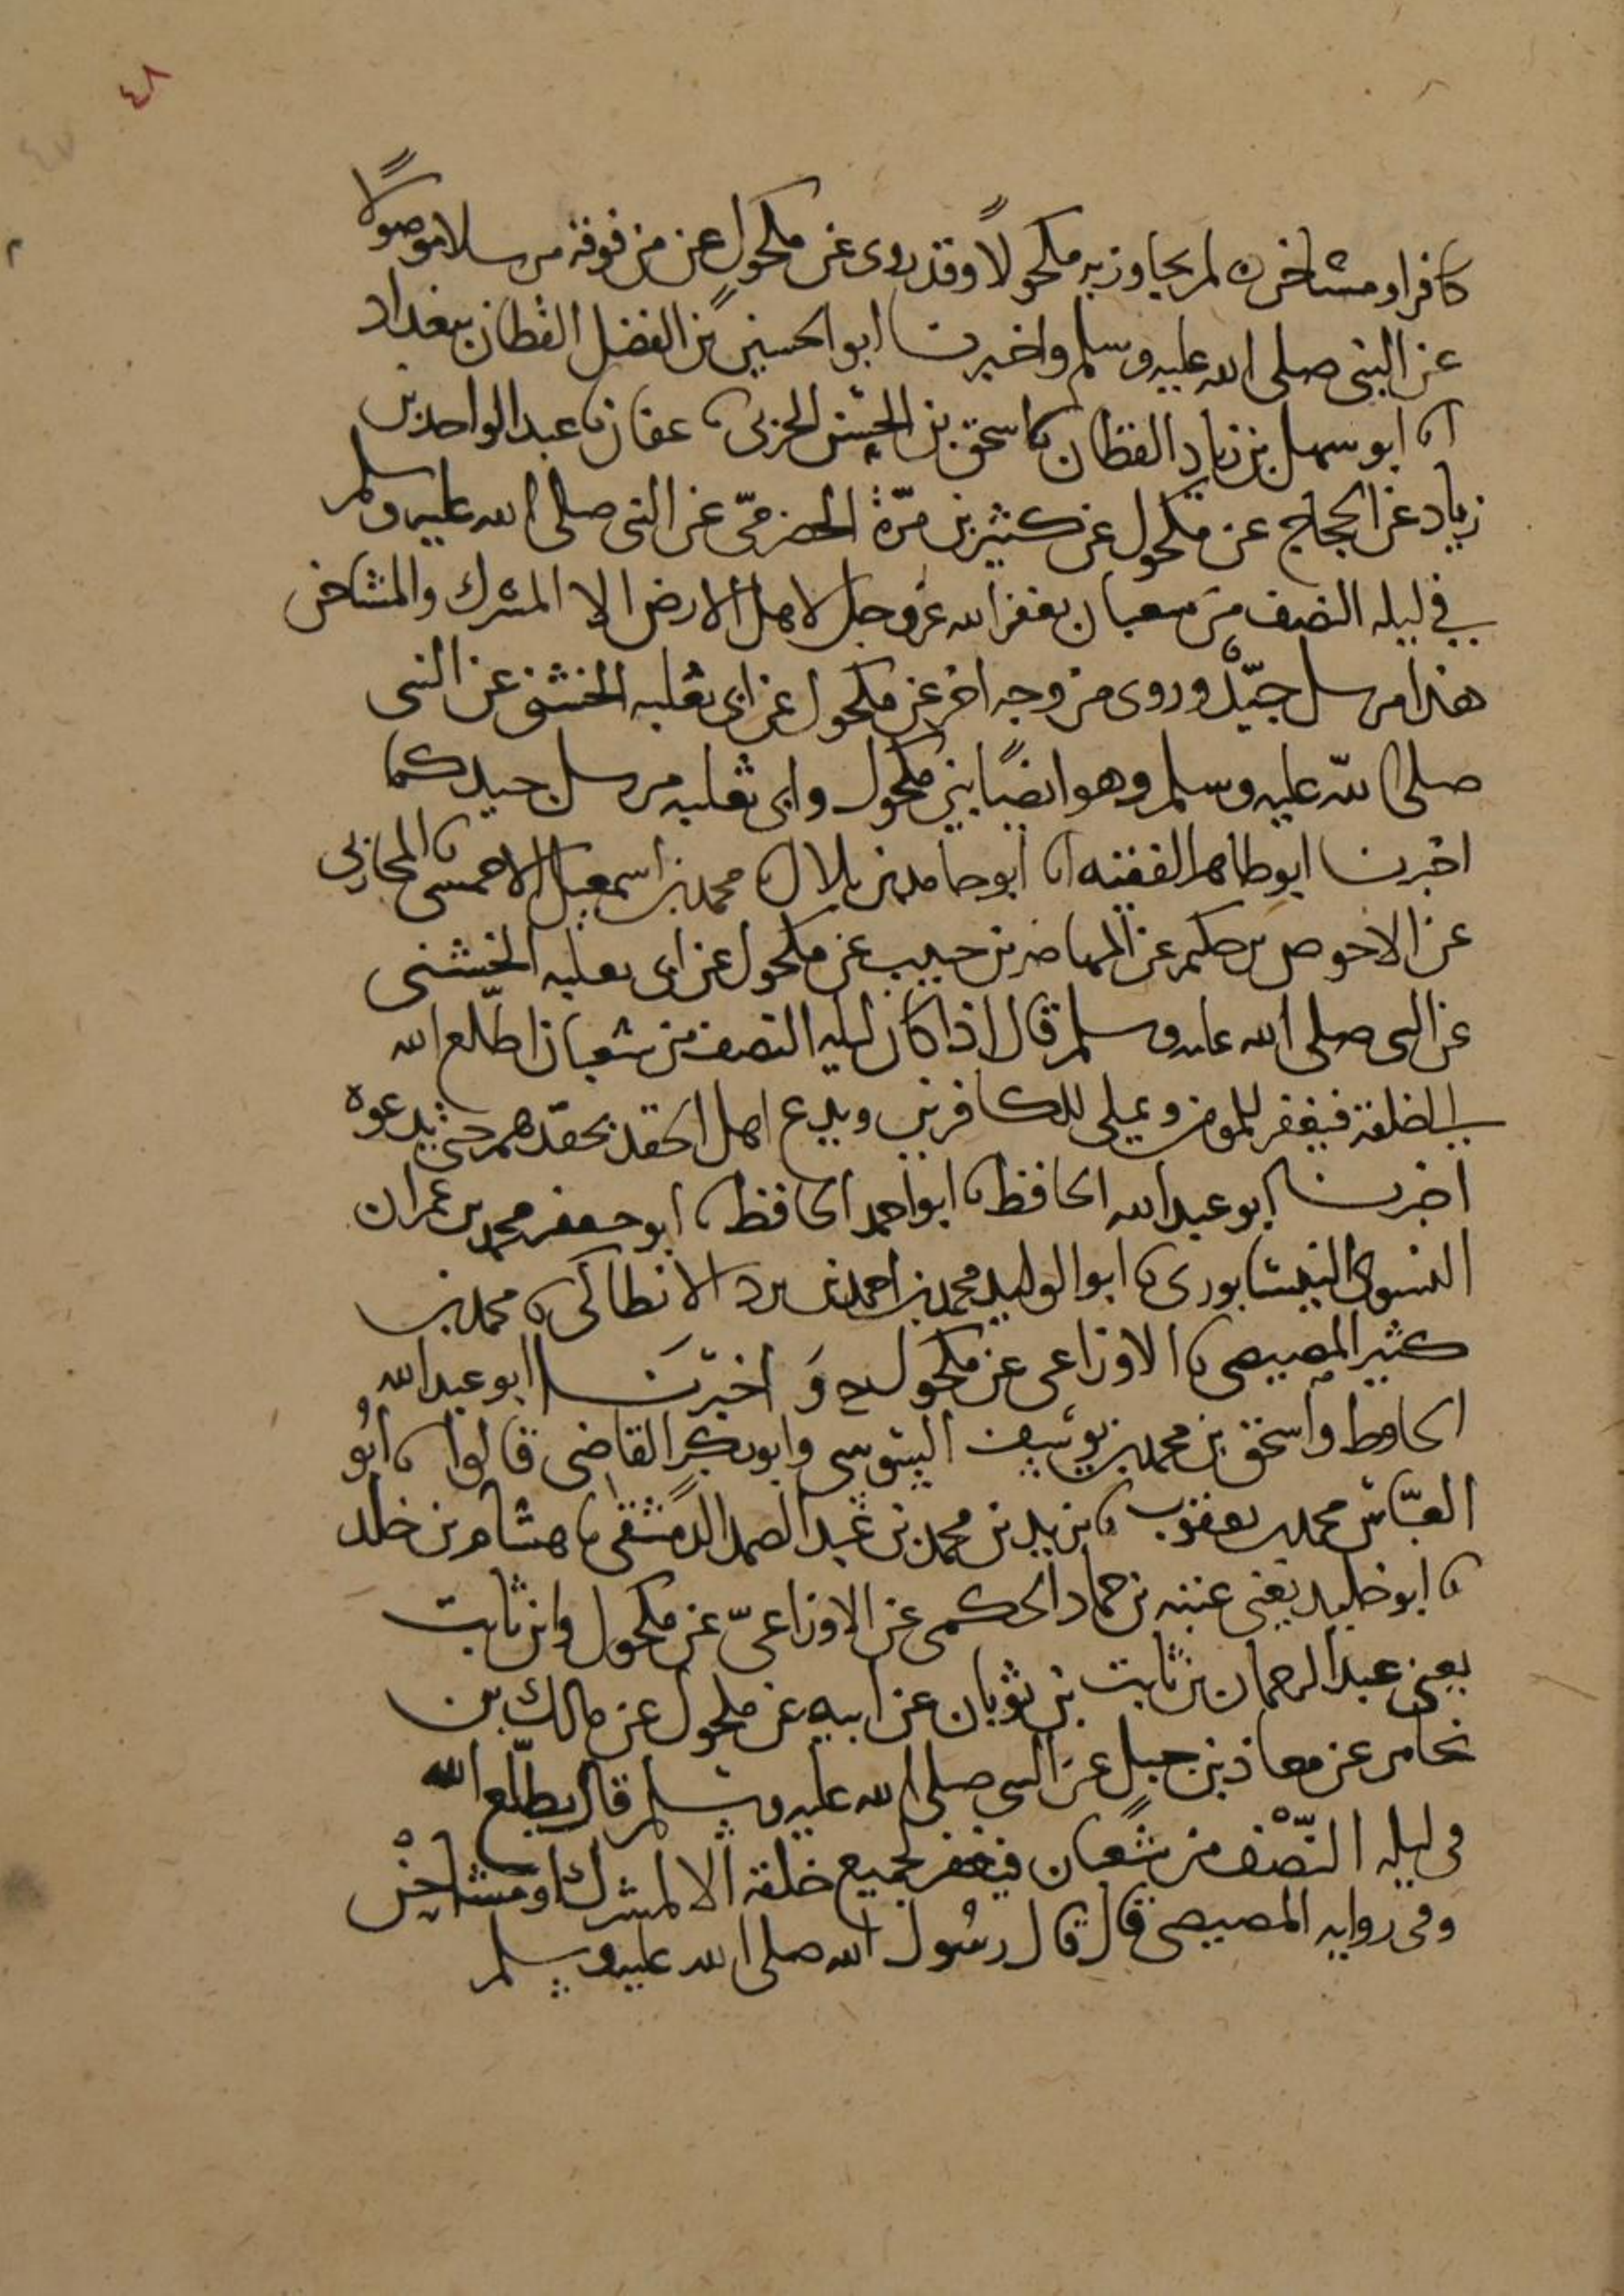 ٤٨
٤٧
كافر او مشاحن لم يجاوز به مكحولاً وقد روى عن مكحول عن من فوقه مرسلا موصولاً
عن النبي صلى الله عليه وسلم واخبرنا ابو الحسين بن الفضل القطان ببغداد
انا ابو سهل بن زياد القطان نا اسحق بن الحسن الحربي نا عفان نا عبد الواحد بن
زياد عن الحجاج عن مكحول عن كثير بن مرة الحضرمي عن النبي صلى الله عليه وسلم
في ليله النصف من شعبان يغفر الله عز وجل لاهل الارض الا المشرك والمشاحن
هذا مرسل جيّدٌ وروى من وجه اخر عن مكحول عن ابي ثعلبه الخشني عن النبي
صلى الله عليه وسلم وهو ايضًا بين مكحول وابي ثعلبه مرسل جيد كما
اخبرنا ابو طاهر الفقيه انا ابو حامد بن بلال نا محمد بن اسمعيل الاحمسي نا المحاربي
عن الاحوص بن حكيم عن المهاصر بن حبيب عن مكحول عن ابي ثعلبه الخشني
عن النبي صلى الله عليه وسلم قال اذا كان ليله النصف من شعبان اطّلع الله
الى خلقه فيغفر للمومن ويملي للكافرين ويدع اهل الحقد بحقدهم حتى يدعوه
اخبرنا ابو عبد الله الحافظ نا ابو احمد الحافظ نا ابو جعفر محمد بن عمران
النسوي النيسابوري نا ابو الوليد محمد بن احمد بن برد الانطاكي نا محمد بن
كثير المصيصي نا الاوزاعي عن مكحول ح وَ اخبرنَا ابو عبد الله
الحافظ واسحق بن محمد بن يوسف السوسي وابو بكر القاضي قالوا نا ابُو
العبّاس محمد بن يعقوب نا يزيد بن محمد بن عبد الصمد الدمشقي نا هشام بن خلد
نا ابو خليد يعني عتبه بن حماد الحكمي عن الاوزاعيّ عن مكحول وابن ثابت
يعني عبد الرحمان بن ثابت بن ثوبان عن ابيه عن مكحول عن مالك بن
يخامر عن معاذ بن جبل عن النبي صلى الله عليه وسلم قال يطّلع الله
في ليله النّصْف من شعبان فيغفر لجميع خلقه الا لمشرك او مشاحنْ
وفي روايه المصيصي قال قال رسُول الله صلى الله عليه وسلم